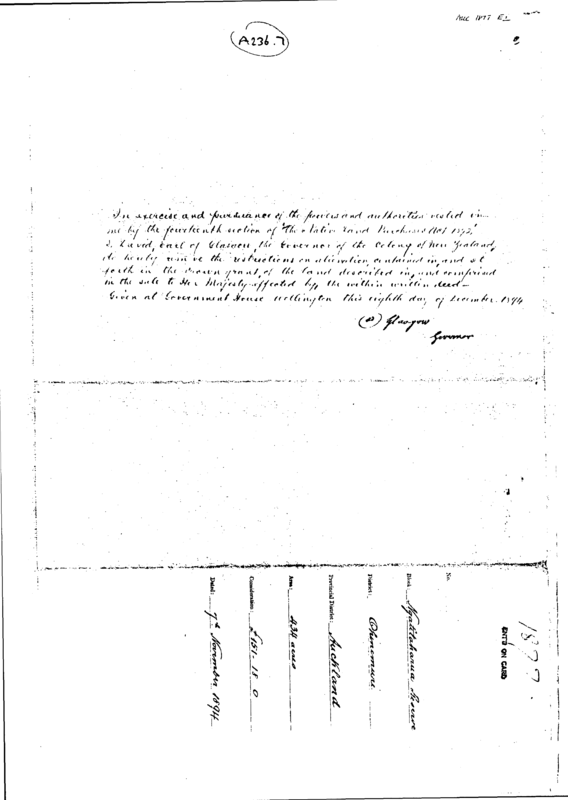 A236.7
In exercise and pursuance of the powers and authorities vested in
me by the fourteenth section of "The Native Land Purchases Act 1892"
I, David, Earl of Glasgow, the Governor of the Colony of New Zealand,
do hereby remove the restrictions on alienation contained in, and set
forth in the Crown grant, of the land described in, and comprised
in the sale to Her Majesty effected by, the within written deed—
Given at Government House Wellington this eighth day of December 1894
(s) Glasgow
Governor
1877.
ENTD ON CARD
No.
Block: Reserve
District: Ohinemuri
Provincial District: Auckland
Area: 434 acres
Consideration: £151-18-0
Dated: 7th November 1894